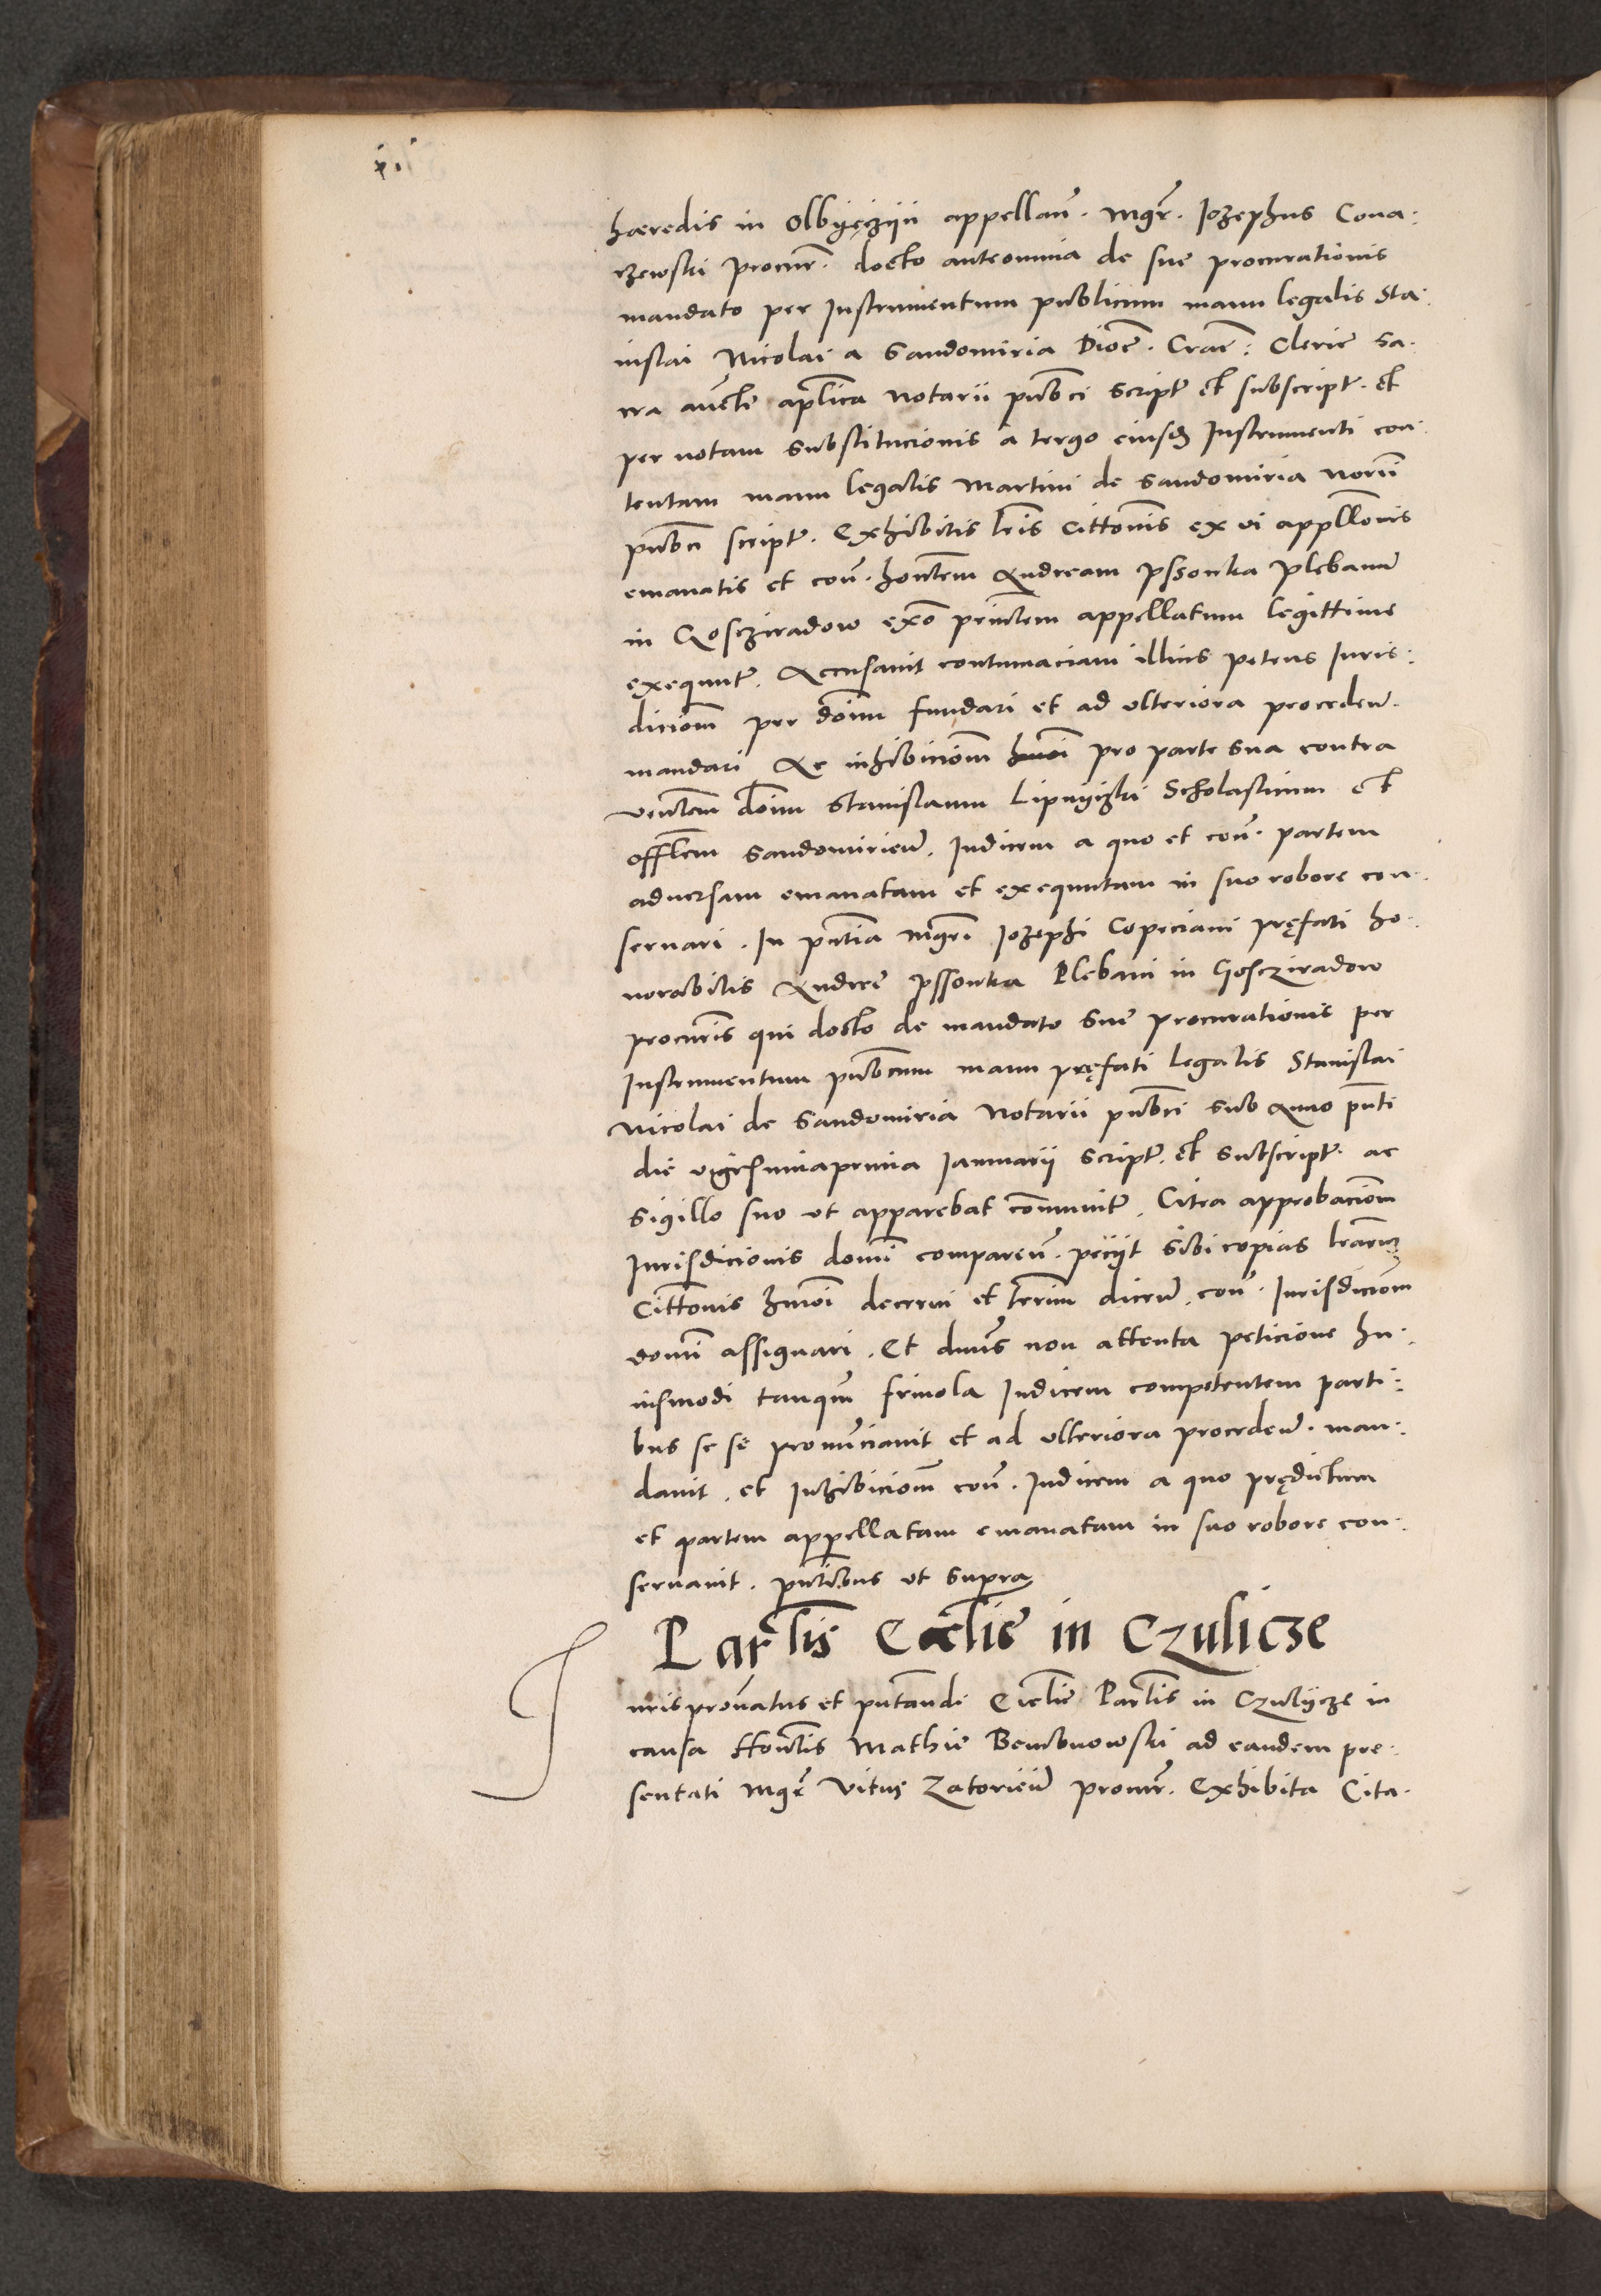 haeredis in Olbyęczyn appellan̄. Mgr̄. Jozephus Cona:
rzewski procur̄. docto anteomnia de sue procurationis
mandato per Instrumentum publicum manu legalis Sta:
nislai Nicolai a Sandomiria Dioc̄. Crac̄: Cleric̄ Sa:
cra auc̄te ap̄lica Notarii pub̄ci script̄ et subscript̄. et
per notam substitucionis a tergo eiusd̄ Instrumenti con:
tentam manu legalis Martini de Sandomiria Norii
pub̄ci script̄. Exhibitis l̄ris citt̄onis ex vi appl̄lonis
emanatis et con̄. hon̄lem Andream Pssonka Plebanū
in Gosczieradow ex̄o prin̄lem appellatum legittime
exequut̄. Accusavit contumaciam illius petens Juris:
diciōm per dōim fundari et ad ulteriora proceden̄.
mandari Ac inhibiciōm hmōi pro parte sua contra
ven̄lem dōim Stanislaum Lipnyczki Scholasticum et
offl̄em Sandomirien̄. Judicem a quo et con̄. partem
adversam emanatam et exequutam in suo robore con:
servari. In pn̄tia Mgrī Jozephi Copeciani pręfati ho:
norabilis Andree Pssonka Plebani in Gosczieradow
procur̄is qui docto de mandato sue procurationis per
Instrumentum pub̄cum manu pręfati legalis Stanislai
Nicolai de Sandomiria Notarii pub̄ci sub Anno pn̄ti
die vigesimaprima Januarii script̄. et subscript̄. ac
sigillo suo ut apparebat com̄unit̄. Citra approbaciōm
Jurisdicionis domī comparen̄. peciit sibi copias l̄rarum
citt̄onis hmōi decerni et ter̄im dicen̄. con̄. Jurisdiciōm
domī assignari. Et dn̄us non attenta peticione hu:
iusmodi tanqm̄ frivola Judicem competentem parti:
bus se se pronun̄ciavit et ad ulteriora proceden̄. man:
davit. et Inhibiciōm con̄. Judicem a quo prędictum
et partem appellatam emanatam in suo robore con:
servavit. pn̄tibus ut supra
Par̄lis Ecc̄lie in Czulicze
Juris pronatus et pn̄tandi Eccl̄ie Par̄lis in Czulycze in
causa Hon̄lis Mathie Bembnowski ad eandem pre:
sentati Mgr̄ Vitus Zatorien̄ procur̄. Exhibita Cita: